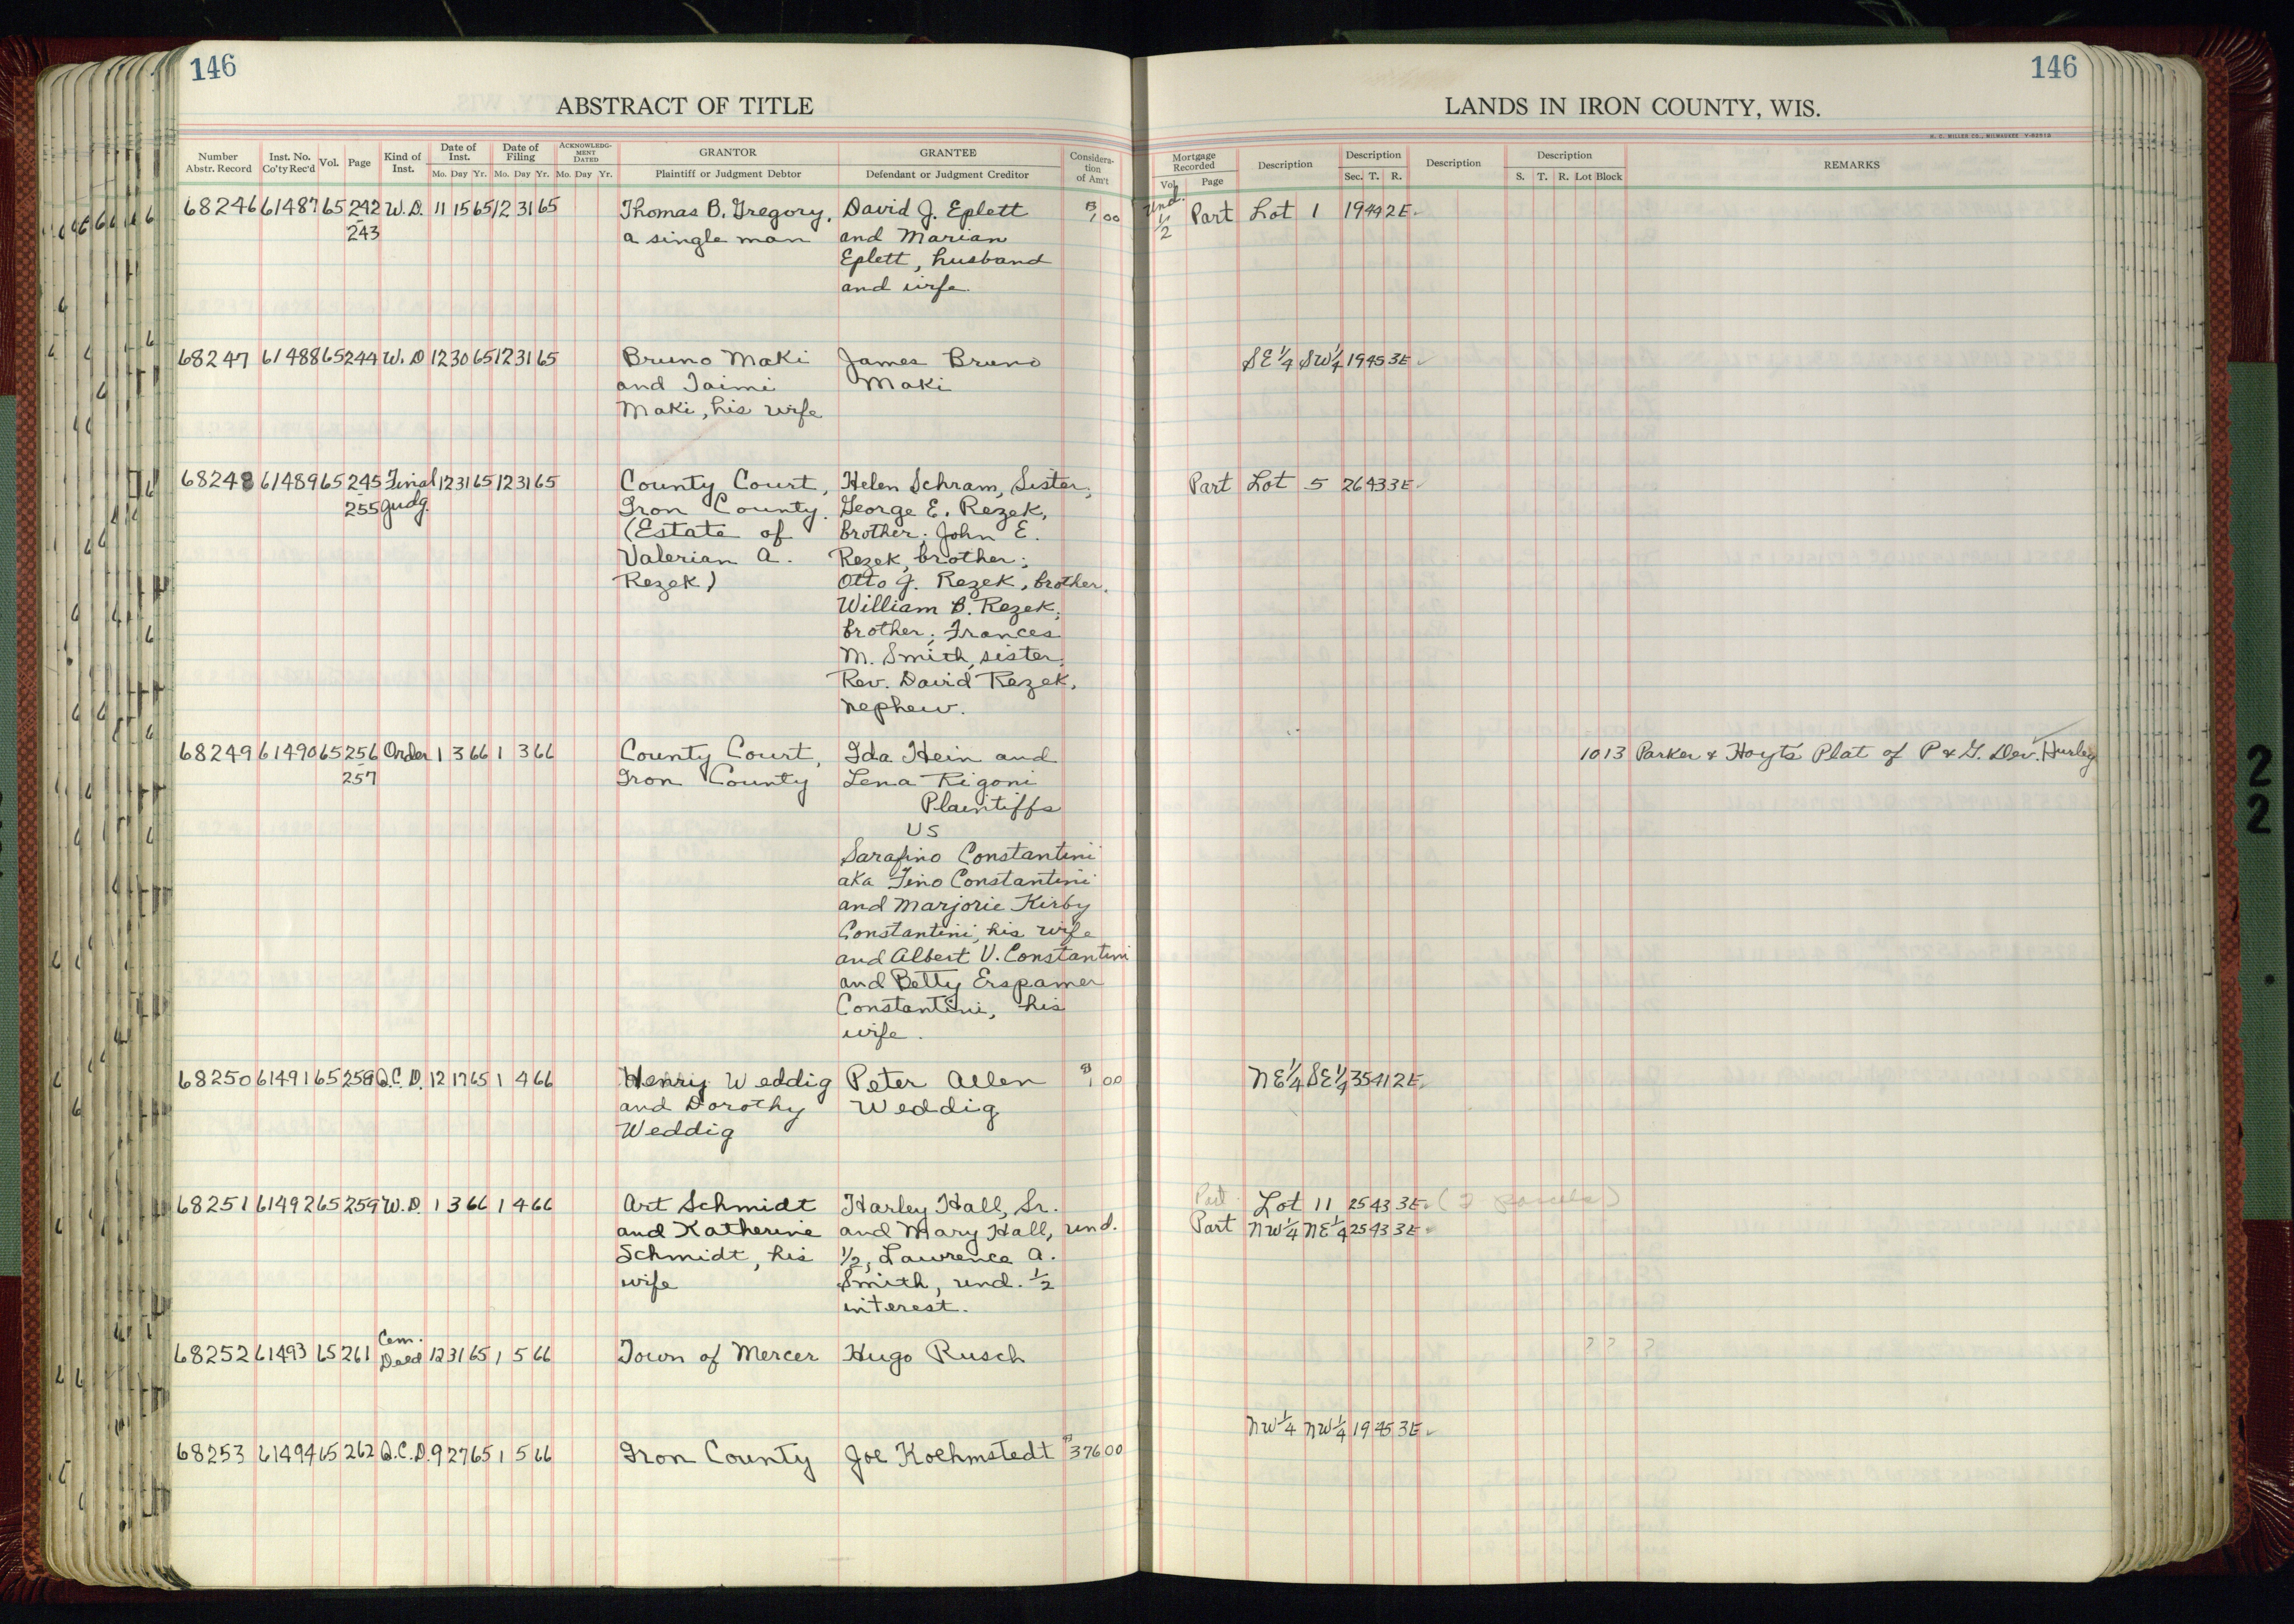 146
146
ABSTRACT OF TITLE
LANDS IN IRON COUNTY, WIS.
H. C. MILLER CO., MILWAUKEE
Number Abstr. Record
Inst. No. Co'ty Rec'd
Vol.
Page
Kind of Inst.
Date of Inst.
Mo. Day Yr.
Date of Filing
Mo. Day Yr.
ACKNOWLEDG-MENT DATED
Mo. Day Yr.
GRANTOR
Plaintiff or Judgment Debtor
GRANTEE
Defendant or Judgment Creditor
Considera-tion of Am't
Mortgage Recorded
Vol. Page
Description
Description
Sec. T. R.
Description
Description
S. T. R. Lot Block
REMARKS
68246 61487 65 242 W.D. 11 15 65 12 31 65 Thomas B. Gregory, David J. Eplett $1 00 Und. Part Lot 1 19 44 2E
243 a single man and Marian 1/2
Eplett, husband
and wife
68247 61488 65 244 W. D 12 30 65 12 31 65 Bruno Maki James Bruno SE 1/4 SW 1/4 19 45 3E
and Taimi Maki
Maki, his wife
68248 61489 65 245 Final 12 31 65 12 31 65 County Court, Helen Schram, Sister; Part Lot 5 26 43 3E
255 Judg. Iron County. George E. Rezek,
(Estate of brother; John E.
Valerian A. Rezek, brother;
Rezek) Otto J. Rezek, brother.
William B. Rezek,
brother; Frances
M. Smith, sister,
Rev. David Rezek,
nephew.
68249 61490 65 256 Order 1 3 66 1 3 66 County Court, Ida Hein and 10 13 Parker & Hoyt's Plat of P & G. Dev. Hurley
257 Iron County Lena Rigoni
Plaintiffs
VS
Sarafino Constantini
aka Fino Constantini
and Marjorie Kirby
Constantini, his wife
and Albert V. Constantini
and Betty Erspamer
Constantini, his
wife.
68250 61491 65 258 Q.C.D. 12 17 65 1 4 66 Henry Weddig Peter Allen $1 00 NE 1/4 SE 1/4 35 41 2E
and Dorothy Weddig
Weddig
68251 61492 65 259 W.D. 1 3 66 1 4 66 Art Schmidt Harley Hall, Sr. Part Lot 11 25 43 3E (2 parcels)
and Katherine and Mary Hall, und. Part NW 1/4 NE 1/4 25 43 3E
Schmidt, his 1/2, Lawrence A.
wife Smith, und. 1/2
interest.
68252 61493 65 261 Cem. Deed 12 31 65 1 5 66 Town of Mercer Hugo Rusch ? ? ?
NW 1/4 NW 1/4 19 45 3E
68253 61494 65 262 Q.C.D. 9 27 65 1 5 66 Iron County Joe Koehmstedt $376 00